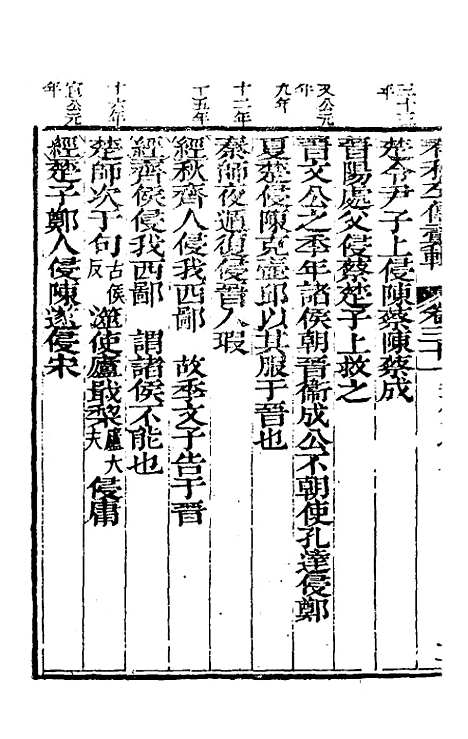 春秋左傳彙輯 卷三十一
三十三年
楚令尹子上侵陳蔡陳蔡成
晉陽處父侵蔡楚子上救之
文公元年
晉文公之季年諸侯朝晉衞成公不朝使孔達侵鄭
九年
夏楚侵陳克壺邱以其服于晉也
十二年
秦師夜遁復侵晉入瑕
十五年
經秋齊人侵我西鄙 故季文子告于晉
經齊侯侵我西鄙 謂諸侯不能也
十六年
楚師次于句古侯反澨使廬戢黎廬大夫侵庸
宣公元年
經楚子鄭人侵陳遂侵宋